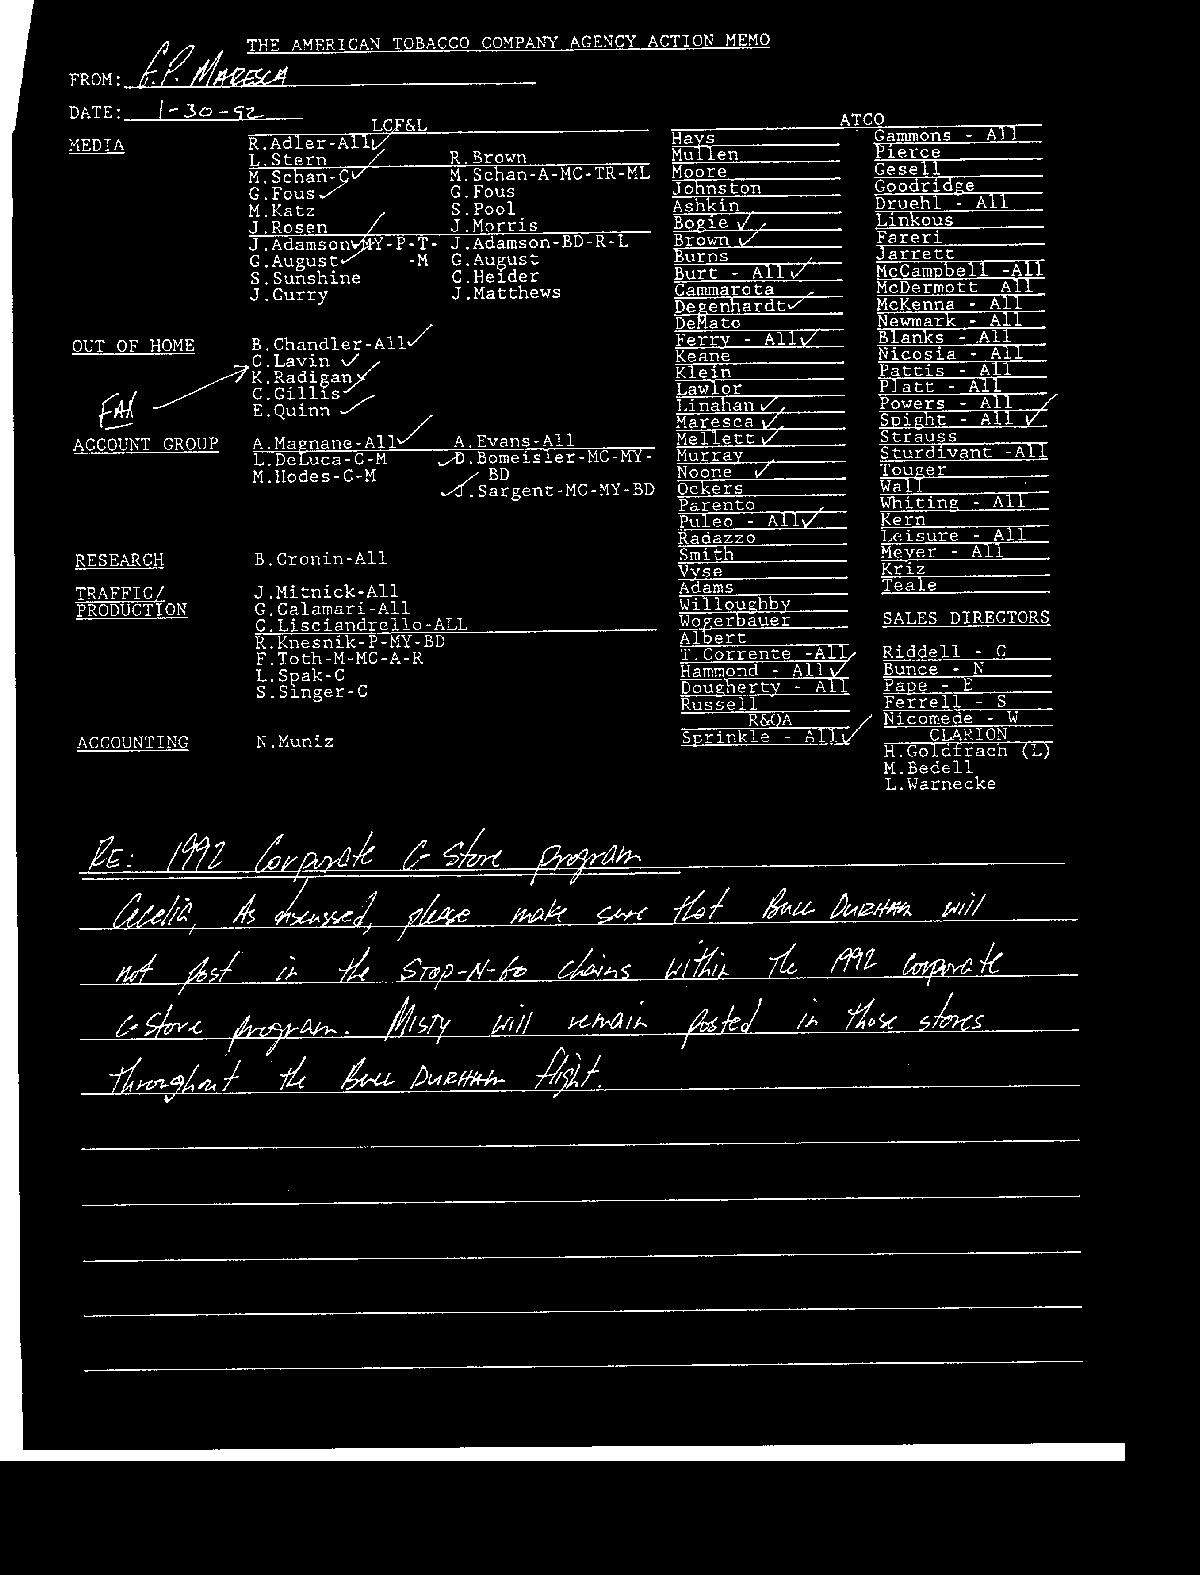 THE AMERICAN TOBACCO COMPANY AGENCY ACTION MEMO
FROM: F.P. MARESCA
DATE: 1-30-92
LCF&L
MEDIA
R.Adler-All ✓
L.Stern R.Brown
M.Schan-C ✓ M.Schan-A-MC-TR-ML
G.Fous ✓ G.Fous
M.Katz S.Pool
J.Rosen J.Morris
J.Adamson ✓ MY-P-T- J.Adamson-BD-R-L
G.August ✓ -M G.August
S.Sunshine C.Heider
J.Curry J.Matthews
OUT OF HOME
B.Chandler-All ✓
C.Lavin ✓
K.Radigan ✓
C.Gillis ✓
E.Quinn ✓
FAX
ACCOUNT GROUP
A.Magnane-All ✓ A.Evans-All
L.DeLuca-C-M ✓ D.Bomeisler-MC-MY-
M.Hodes-C-M BD
✓ J.Sargent-MC-MY-BD
RESEARCH B.Cronin-All
TRAFFIC/
PRODUCTION
J.Mitnick-All
G.Calamari-All
C.Lisciandrello-ALL
R.Knesnik-P-MY-BD
F.Toth-M-MC-A-R
L.Spak-C
S.Singer-C
ACCOUNTING N.Muniz
ATCO
Hays
Mullen
Moore
Johnston
Ashkin
Bogie ✓
Brown ✓
Burns
Burt - All ✓
Cammarota
Degenhardt ✓
DeMato
Ferry - All ✓
Keane
Klein
Lawlor
Linahan ✓
Maresca ✓
Mellett ✓
Murray
Noone ✓
Ockers
Parento
Puleo - All ✓
Radazzo
Smith
Vyse
Adams
Willoughby
Wogerbauer
Albert
T.Corrente -All
Hammond - All ✓
Dougherty - All
Russell
R&OA
Sprinkle - All ✓
Gammons - All
Pierce
Gesell
Goodridge
Druehl - All
Linkous
Fareri
Jarrett
McCampbell -All
McDermott All
McKenna - All
Newmark - All
Blanks - All
Nicosia - All
Pattis - All
Platt - All
Powers - All
Spight - All ✓
Strauss
Sturdivant -All
Touger
Wall
Whiting - All
Kern
Leisure - All
Meyer - All
Kriz
Teale
SALES DIRECTORS
Riddell - C
Bunce - N
Pape - E
Ferrell - S
Nicomede - W
CLARION
H.Goldfrach (L)
M.Bedell
L.Warnecke
RE: 1992 Corporate C-Store program
Cecelia, As discussed, please make sure that BULL DURHAM will
not post in the STOP-N-GO chains within the 1992 corporate
C-Store program. MISTY will remain posted in those stores
throughout the BULL DURHAM flight.